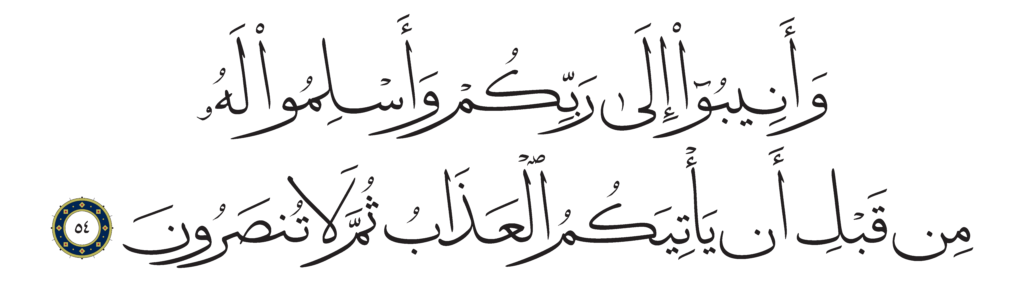 وَأَنِيبُوٓا۟ إِلَىٰ رَبِّكُمْ وَأَسْلِمُوا۟ لَهُۥ
مِن قَبْلِ أَن يَأْتِيَكُمُ ٱلْعَذَابُ ثُمَّ لَا تُنصَرُونَ ٥٤